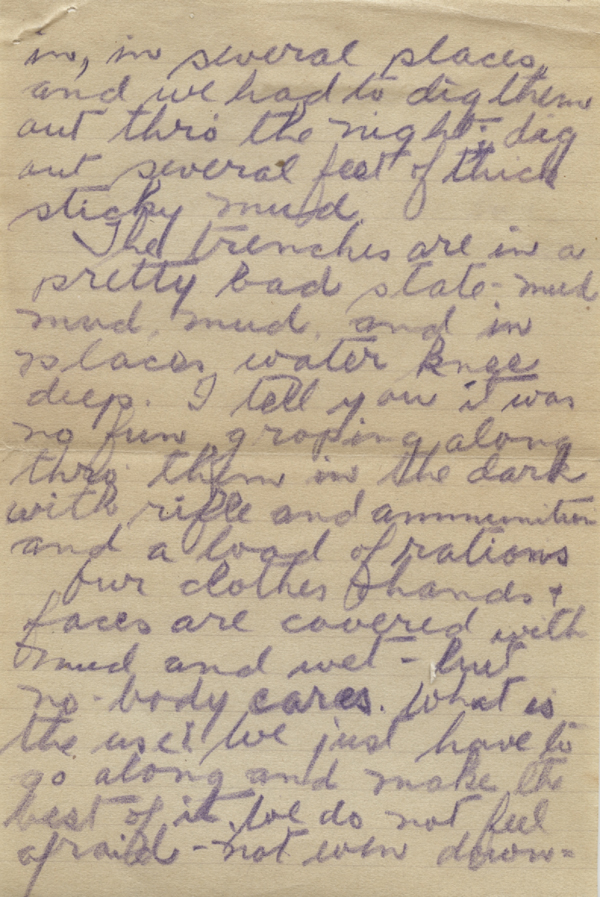 in, in several places,
and we had to dig them
out thro the night; dig
out several feet of thick
sticky mud.
The trenches are in a
pretty bad state - mud
mud, mud, and in
places water knee
deep. I tell you it was
no fun groping along
thro them in the dark
with rifle and ammunition
and a load of rations
Our clothes hands +
faces are covered with
mud and wet - but
no-body cares. What is
the use? We just have to
go along and make the
best of it. We do not feel
afraid - not even down=